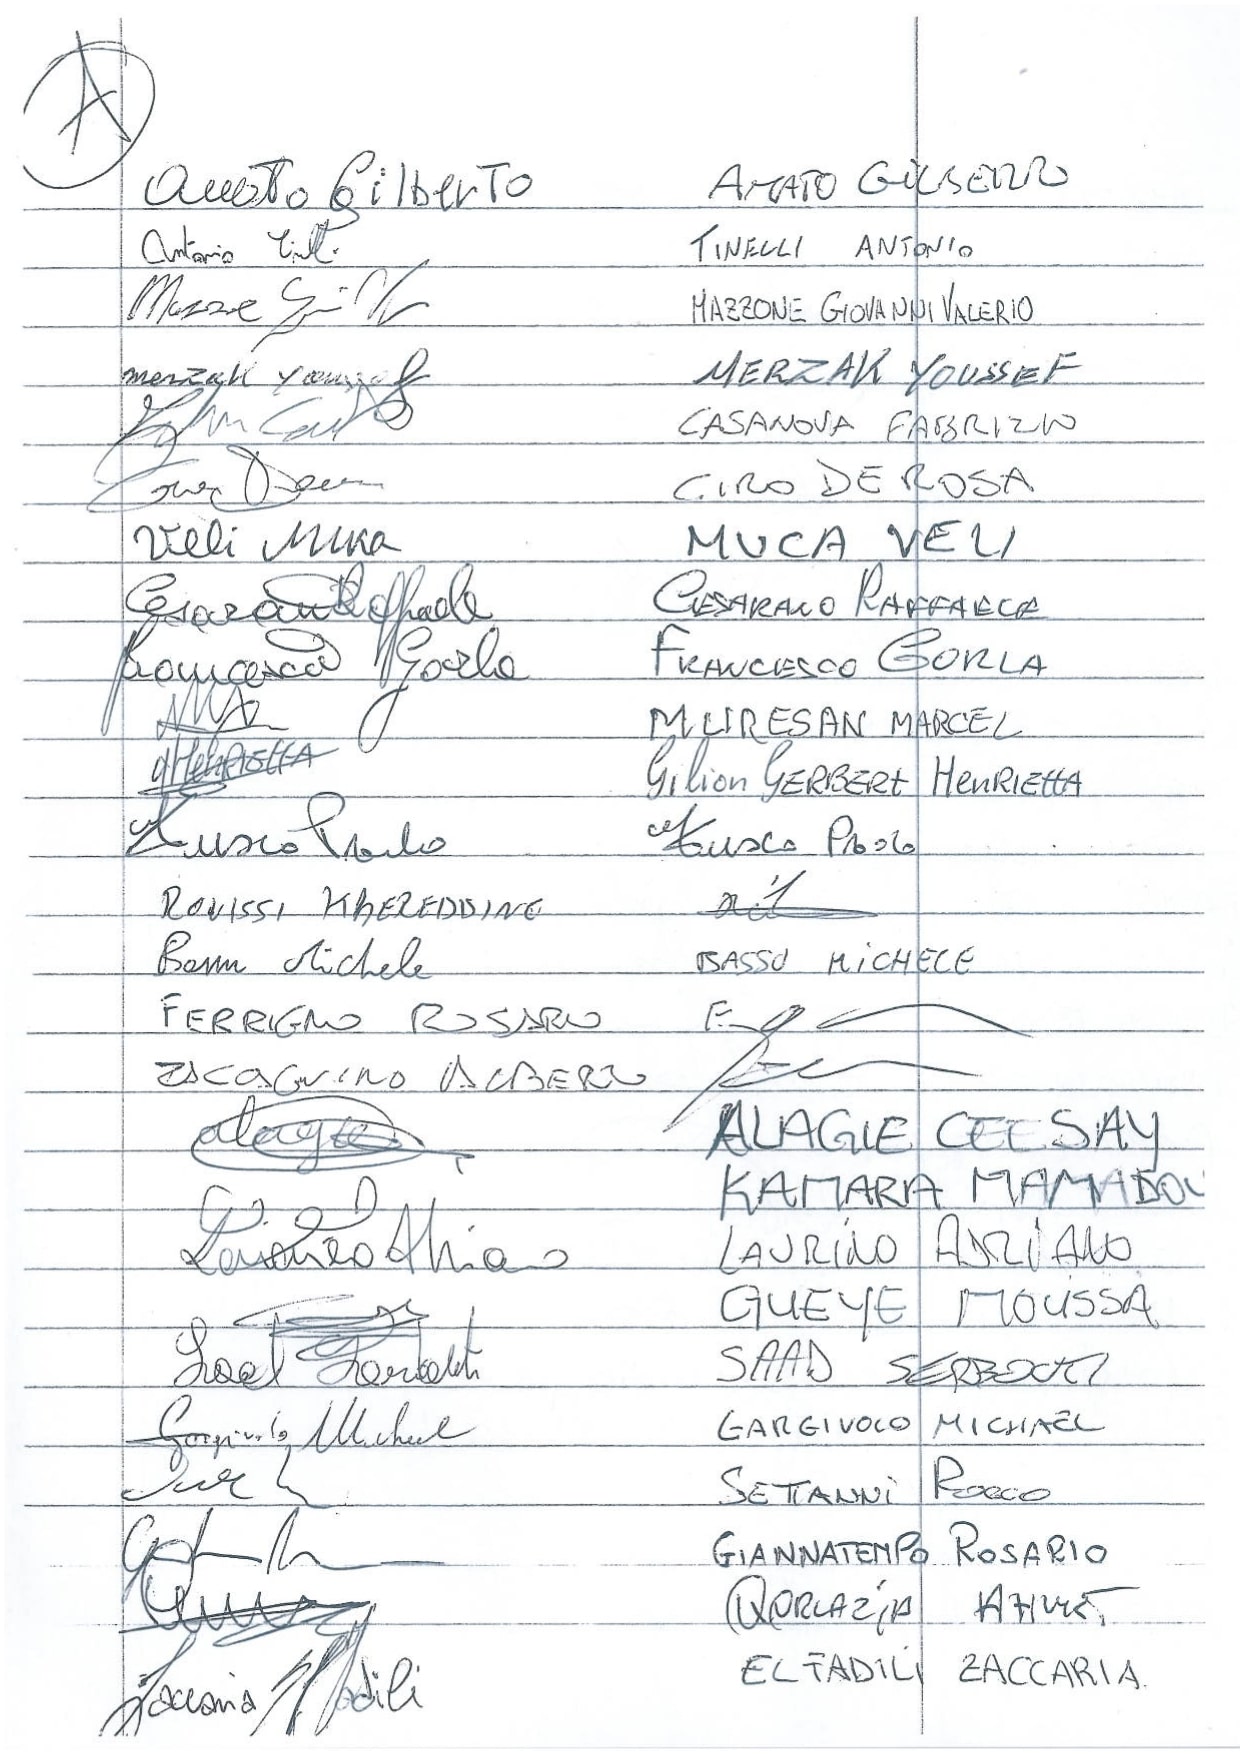 A
Amato Gilberto AMATO GILBERTO
Antonio TINELLI ANTONIO
MAZZONE GIOVANNI VALERIO
merzak youssef MERZAK YOUSSEF
CASANOVA FABRIZIO
CIRO DE ROSA
Veli Muka MUCA VELI
Cesarano Raffaele CESARANO RAFFAELE
Francesco Gorla FRANCESCO GORLA
MURESAN MARCEL
HenRiEttA Gilion GERBERt HenRIEttA
Fusco Paolo Fusco Paolo
ROUISSI KHEREDDINE
Basso Michele BASSO MICHELE
FERRIGNO ROSARIO
ZACAGNINO ALBERTO
alagie ALAGIE CEESAY
KAMARA MAMADOU
LAURINO ADRIANO
GUEYE MOUSSA
SAAD SERBOUTI
Gargivolo Michael GARGIVOLO MICHAEL
SETTANNI ROCCO
GIANNATEMPO ROSARIO
EL FADILI ZACCARIA